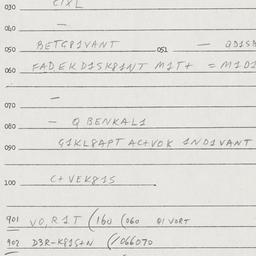 030 CIXL
040 —
050 BETG81VANT 051 — QD1SK
060 FAD.EKD1SK81NT M1T+ = M1D1
070 —
080 — Q BENKAL1
090 G1KL8APT AC+VOK 1ND1VANT
100 C+VEK815
901 VO,R1T (160 (060 Q1VORT
902 D3R-K815+N (/066070